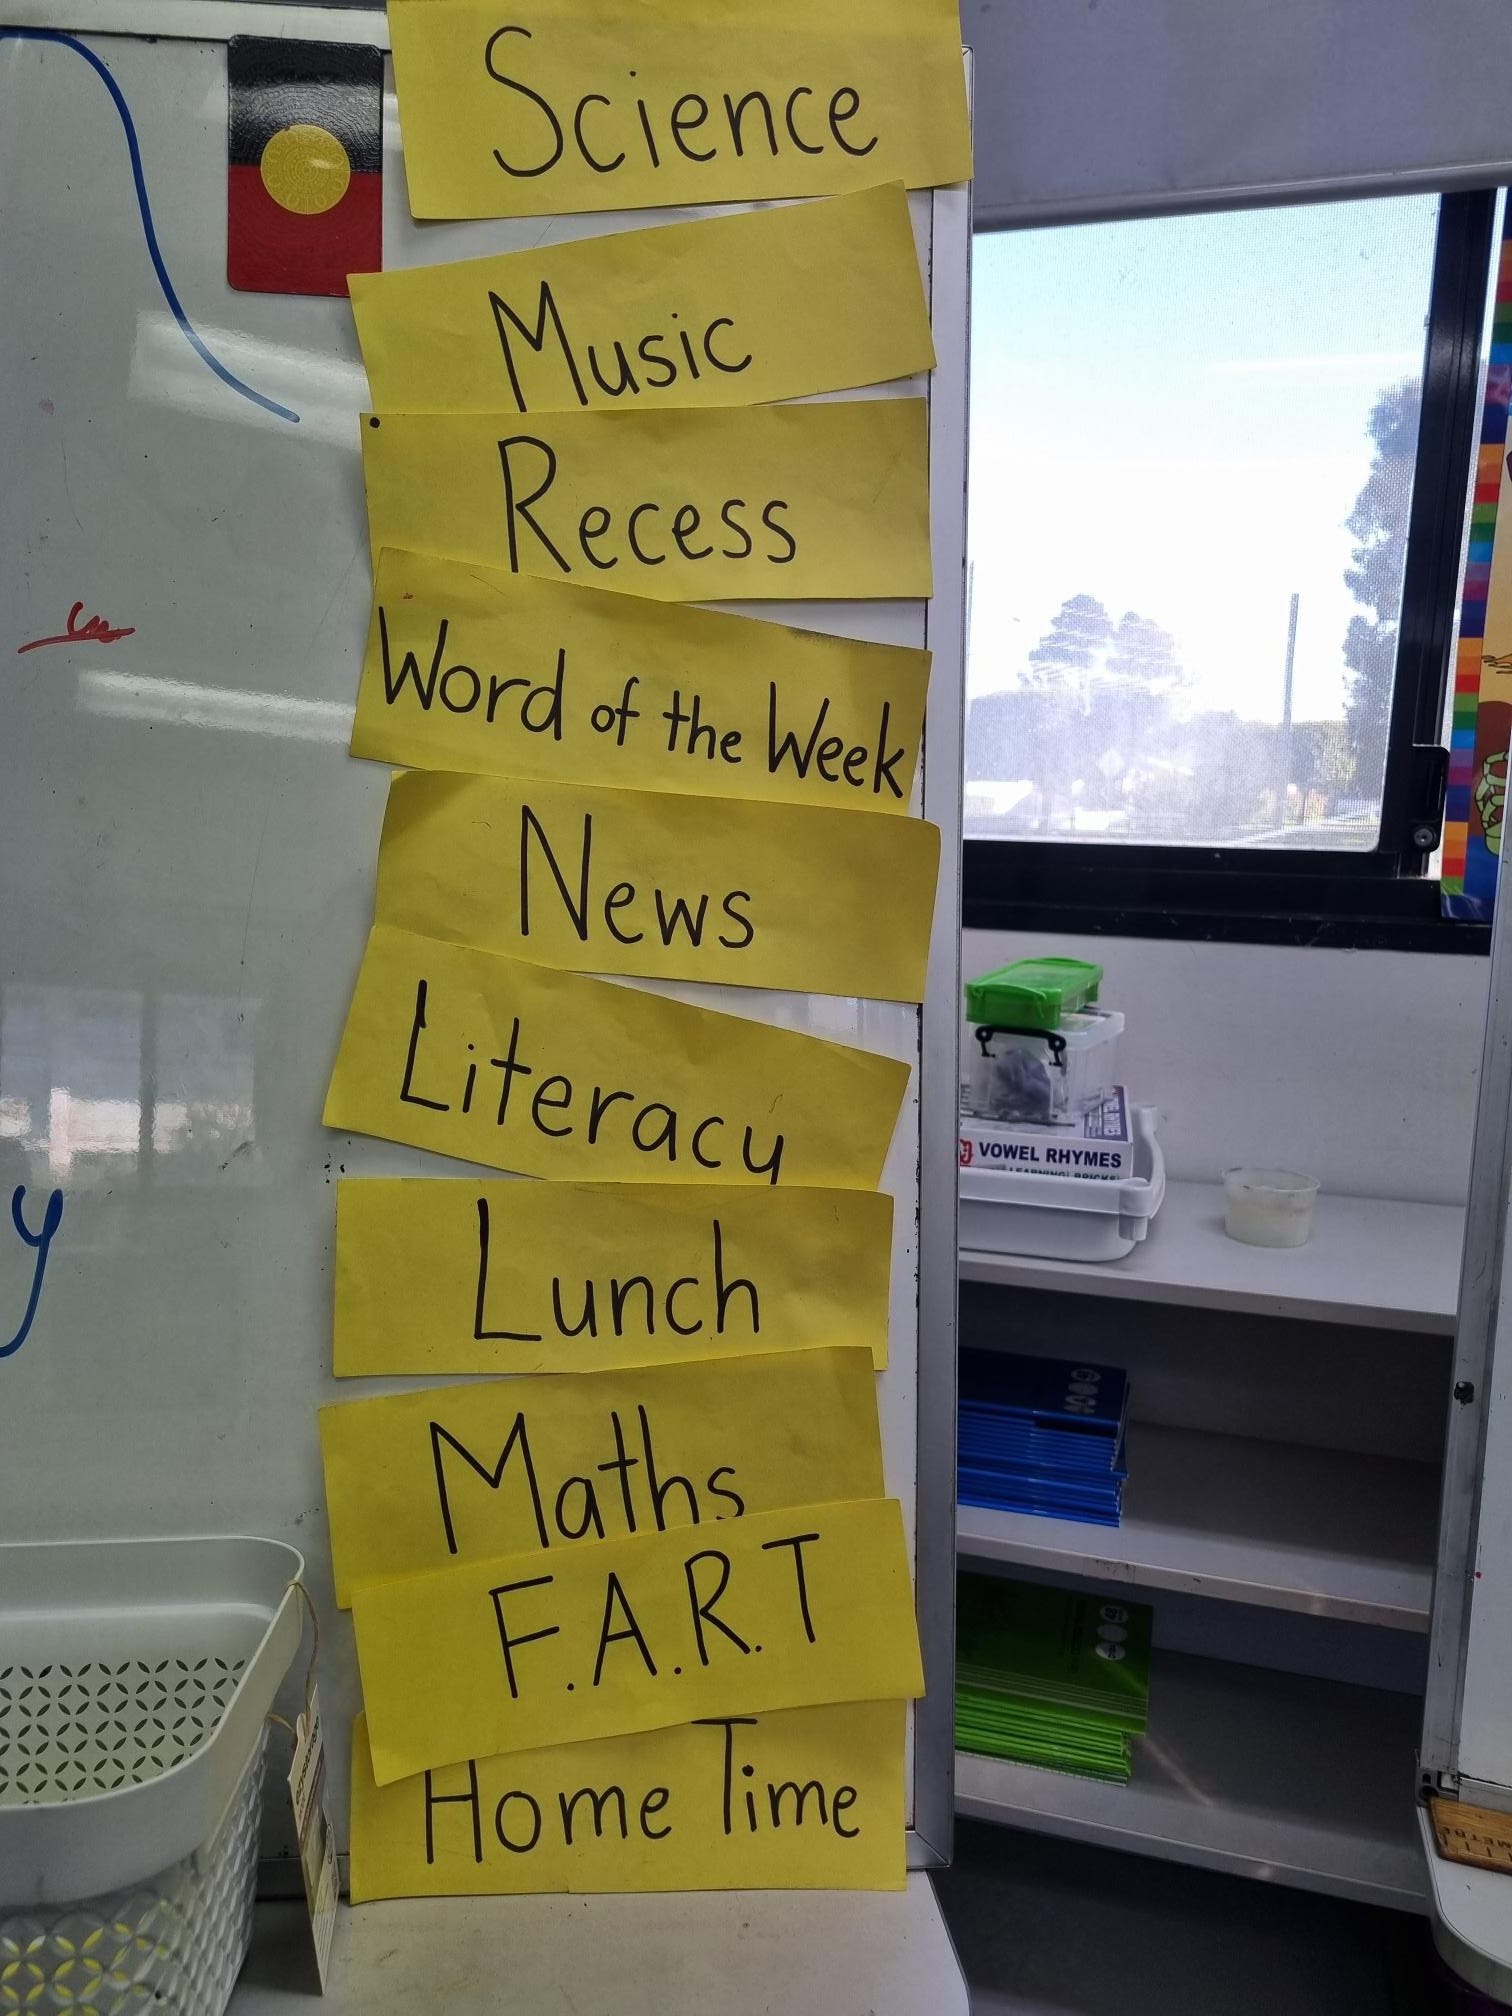 Science
Music
Recess
Word of the Week
News
Literacy
Lunch
Maths
F.A.R.T
Home Time
VOWEL RHYMES
LEARNING BRICKS
y